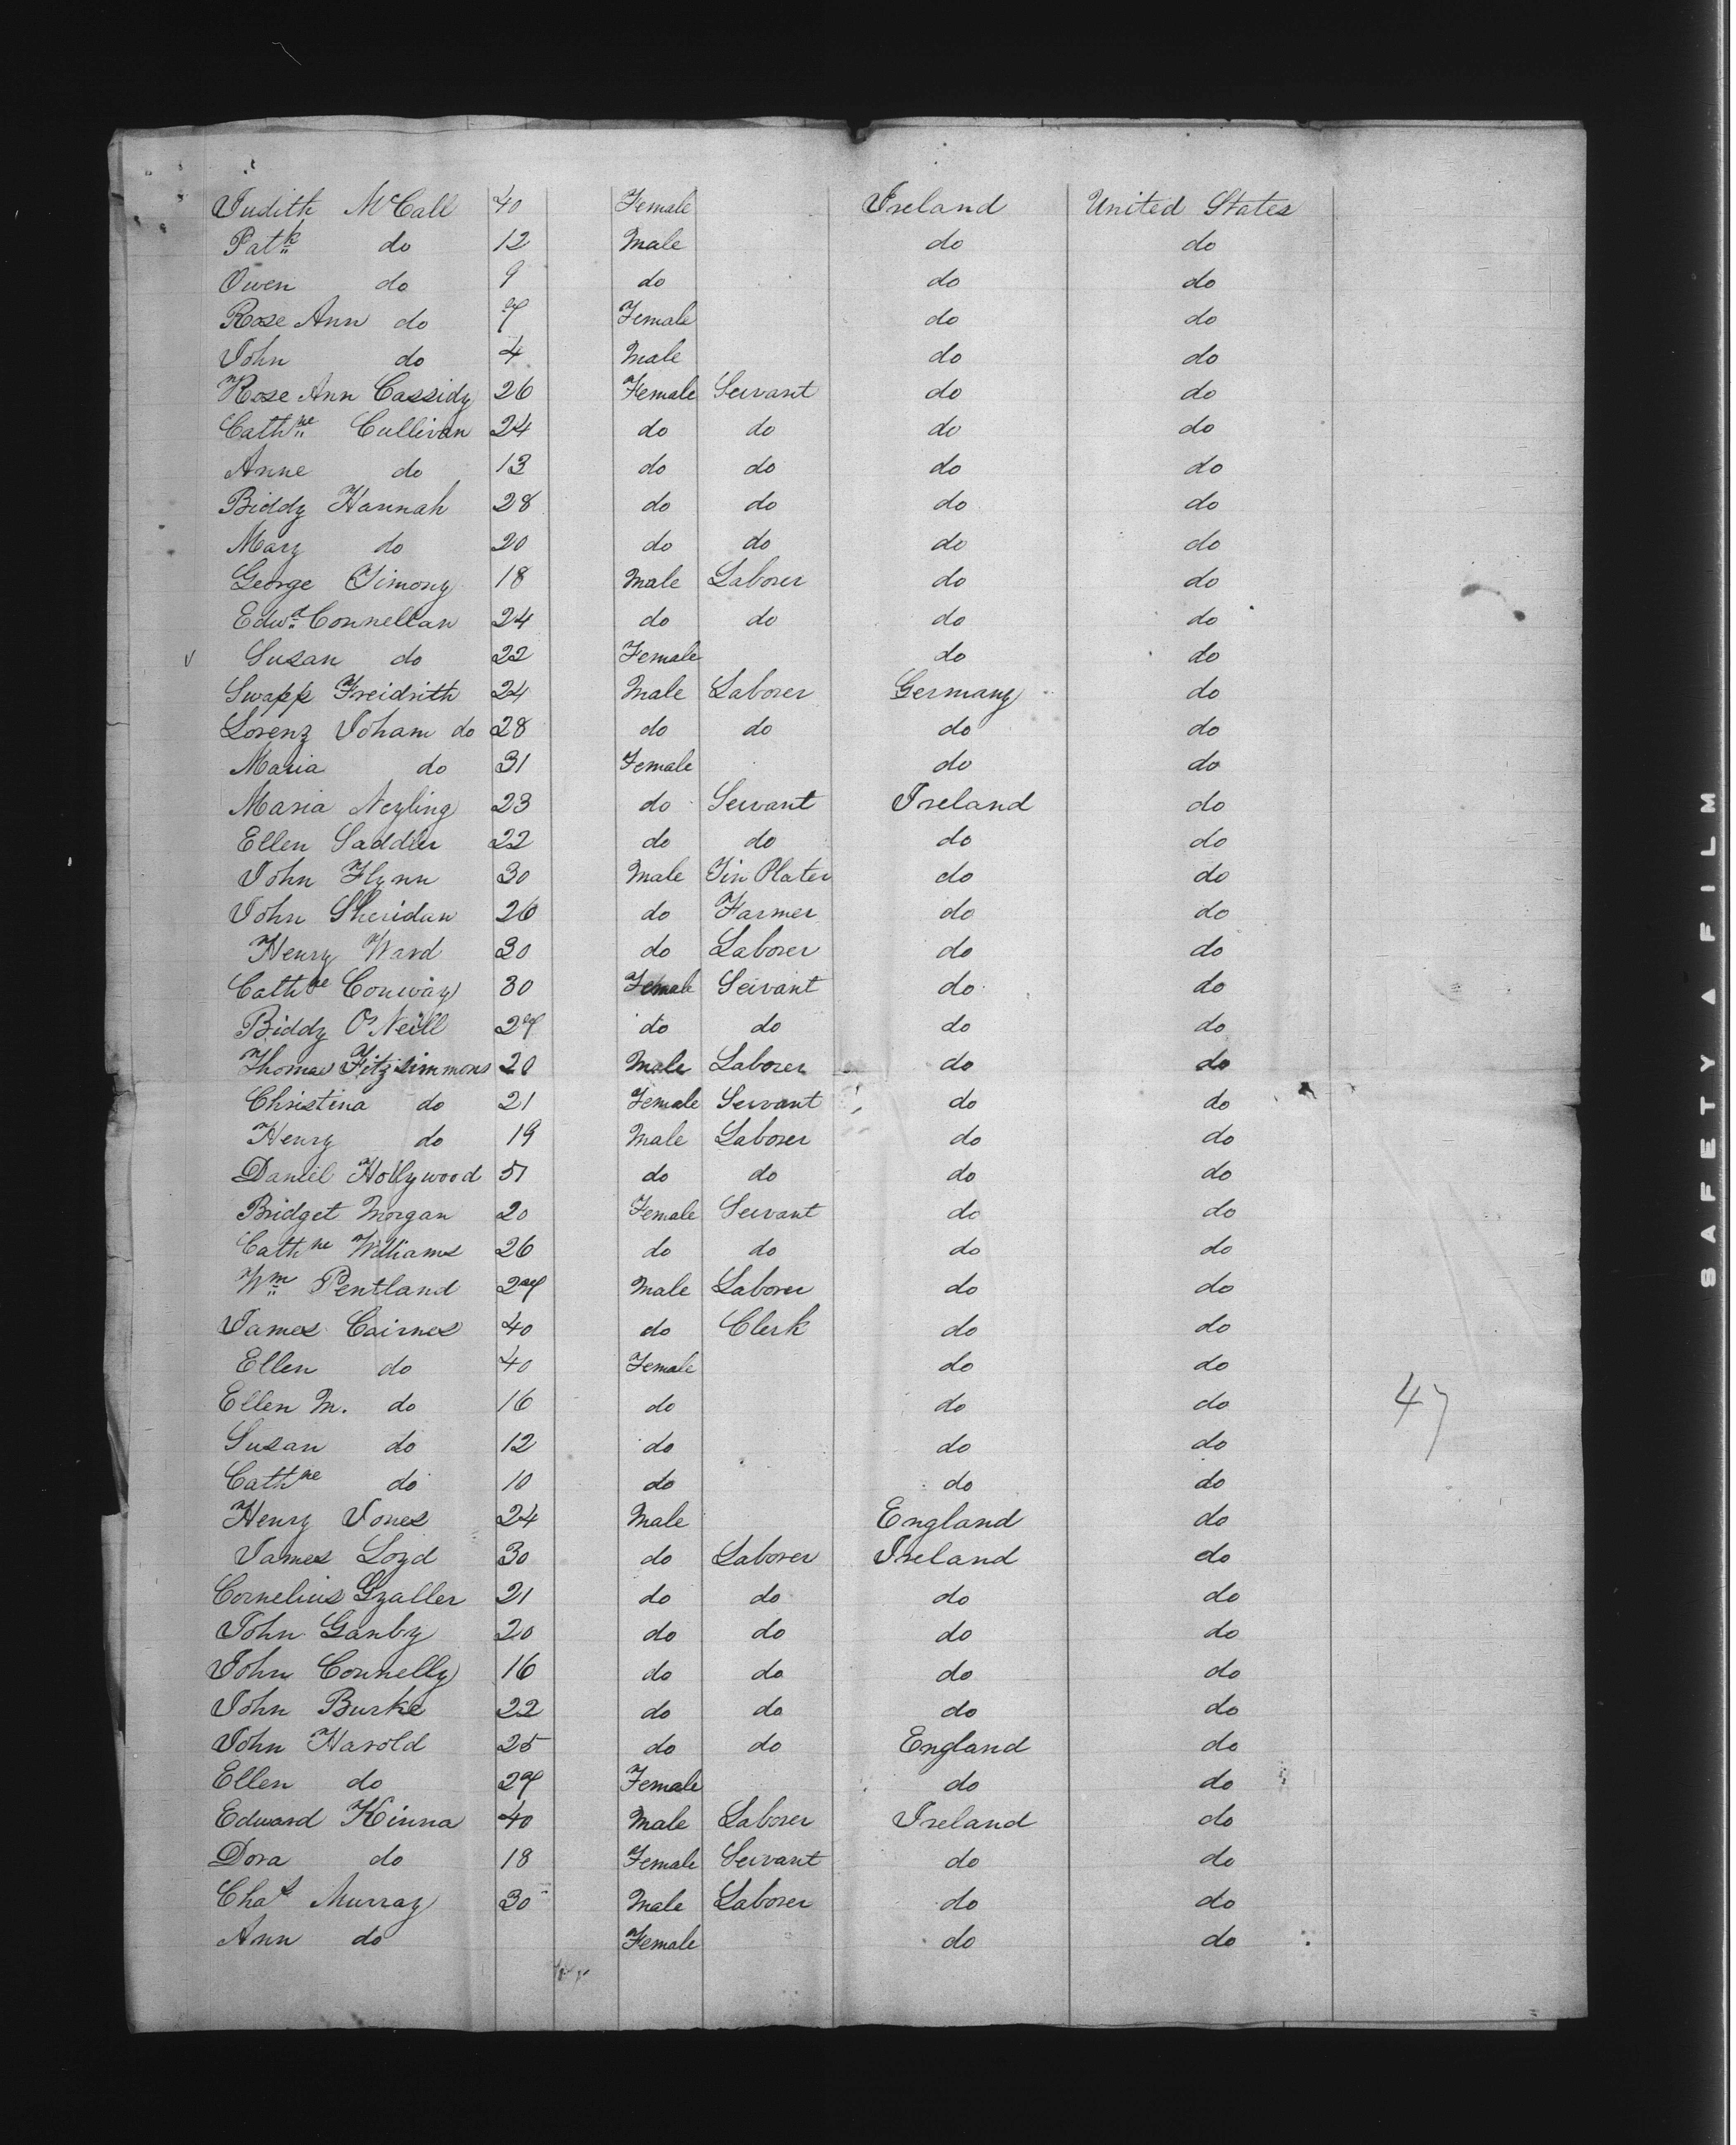 Judith McCall 40 Female Ireland United States
Patk do 12 Male do do
Owen do 9 do do do
Rose Ann do 7 Female do do
John do 4 Male do do
Rose Ann Cassidy 26 Female Servant do do
Cathne Cullivan 24 do do do do
Anne do 13 do do do do
Biddy Hannah 28 do do do do
Mary do 20 do do do do
George Timony 18 Male Laborer do do
Edwd Connellan 24 do do do do
Susan do 22 Female do do
Swapp Freidrith 24 Male Laborer Germany do
Lorenz Joham do 28 do do do do
Maria do 31 Female do do
Maria Neyling 23 do Servant Ireland do
Ellen Saddler 22 do do do do
John Flynn 30 Male Tin Plater do do
John Sheridan 26 do Farmer do do
Henry Ward 30 do Laborer do do
Cathne Conway 30 Female Servant do do
Biddy O'Neill 27 do do do do
Thomas Fitzsimmons 20 Male Laborer do do
Christina do 21 Female Servant do do
Henry do 19 Male Laborer do do
Daniel Hollywood 51 do do do do
Bridget Morgan 20 Female Servant do do
Cathne Williams 26 do do do do
Wm Pentland 27 Male Laborer do do
James Cairnes 40 do Clerk do do
Ellen do 40 Female do do
Ellen M. do 16 do do do
47
Susan do 12 do do do
Cathne do 10 do do do
Henry Jones 24 Male England do
James Loyd 30 do Laborer Ireland do
Cornelius Gzaller 21 do do do do
John Ganby 20 do do do do
John Connelly 16 do do do do
John Burke 22 do do do do
John Harold 25 do do England do
Ellen do 27 Female do do
Edward Kinna 40 Male Laborer Ireland do
Dora do 18 Female Servant do do
Chas Murray 30 Male Laborer do do
Ann do Female do do
SAFETY A FILM